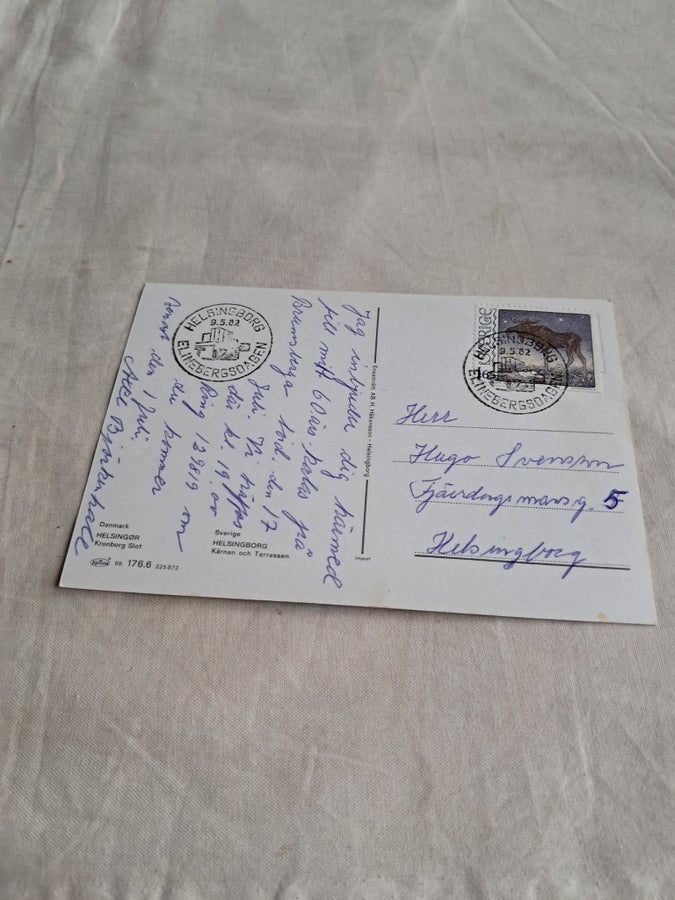 Jag inbjuder dig härmed
till mitt 60 års kalas på
lörd. den 17
Juli. Vi träffas
där kl. 19.00
Ring 129819 om
du kommer
senast den 1 Juli.
Axel
HELSINGBORG
9.5.82
ELINEBERGSDAGEN
Danmark
HELSINGØR
Kronborg Slot
Sverige
HELSINGBORG
Kärnan och Terrassen
58. 176.6 225872
Ensamrätt AB H. Håkansson - Helsingborg
Import
SVERIGE
165
HELSINGBORG
9.5.82
ELINEBERGSDAGEN
Herr
Hugo Svensson
Fjärdingsmansg. 5
Helsingborg